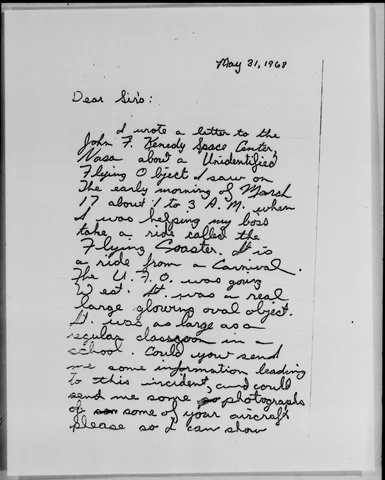 May 31, 1968
Dear Sirs:
I wrote a letter to the
John F. Kenedy Space Center,
Nasa about a Unidentified
Flying Object I saw on
The early morning of March
17 about 1 to 3 A.M. when
I was helping my boss
take a ride called the
Flying Coaster. It is
a ride from a Carnival.
The U.F.O. was going
West. It was a real
large glowing oval object.
It was as large as a
regular classroon in a
school. Could you send
me some information leading
to this incident, and could
send me some photographs
of some of your aircraft
please so I can show